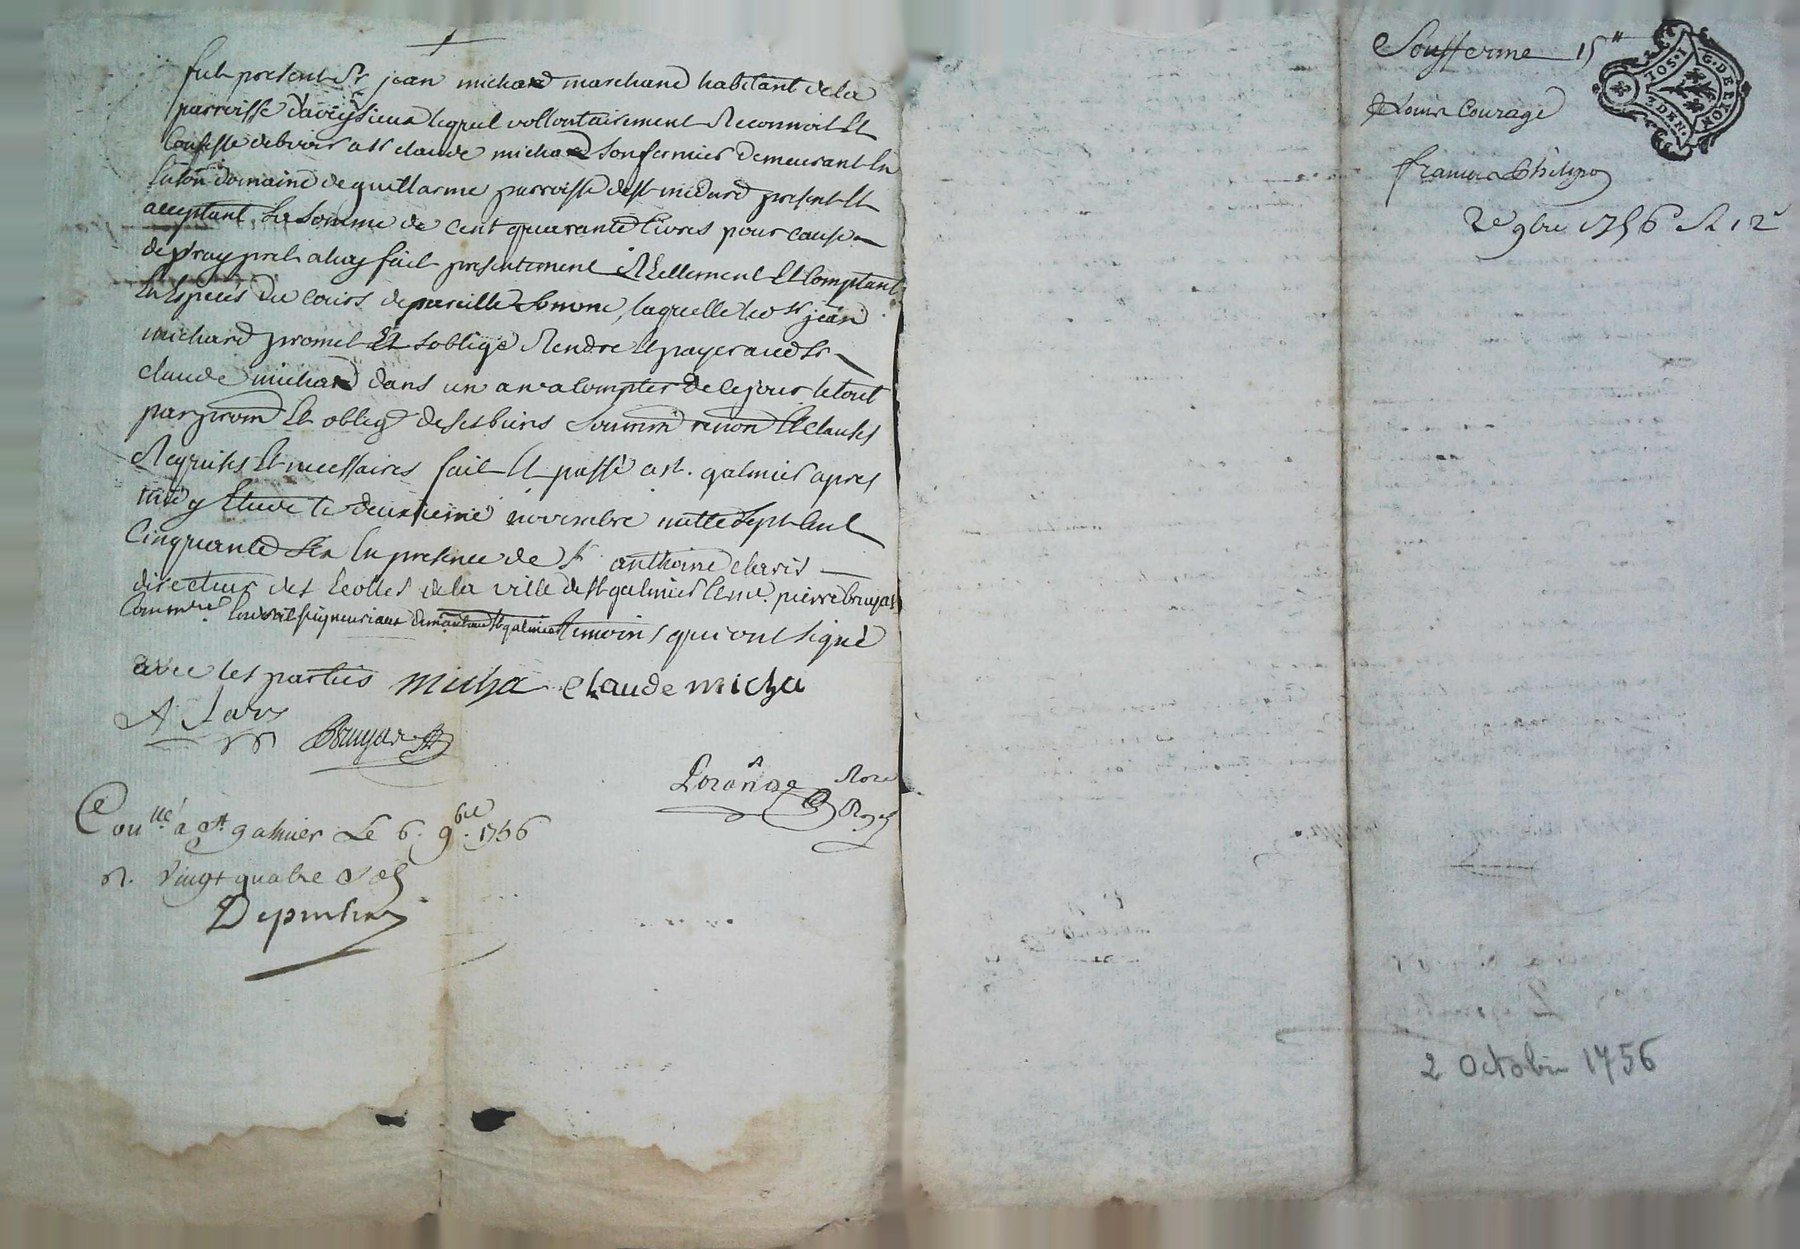 fut present Sr jean michard marchand habitant de la
parroisse d'aveysieux lequel vollontairement Reconnoit Et
Confesse debvoir a Sr claude michard son fermier demeurant En
son domaine de guillarme parroisse de St medard present Et
acceptant La Somme de Cent quarante Livres pour cause
de vray pret a luy fait presentement Reellement Et Comptant
En Especes du cours de pareille Somme, laquelle led Sr jean
michard promet Et s'oblige Rendre Et payer aud Sr
claude michard dans un an a Compter de ce jour le tout
par prom Et oblig de ses biens Soumm renon Et clauses
Requises Et necessaires fait Et passé a St. galmier apres
midy Etude le deuxieme novembre mille Sept Cent
Cinquante Six En presence de Sr anthoine claris
directeur des Ecolles de la ville de St galmier Et me. pierre bruyas
Commre temoins qui ont signé
avec les parties micha Claude micha
Bruyas
Notre
Royal
Conllé a St galmier Le 6. 9bre. 1756
R. vingt quatre Sols
Souffermé 15tt
Louis Courage
2e 9bre 1756
G. DE LYON
3 DEN.
2 Octobre 1756